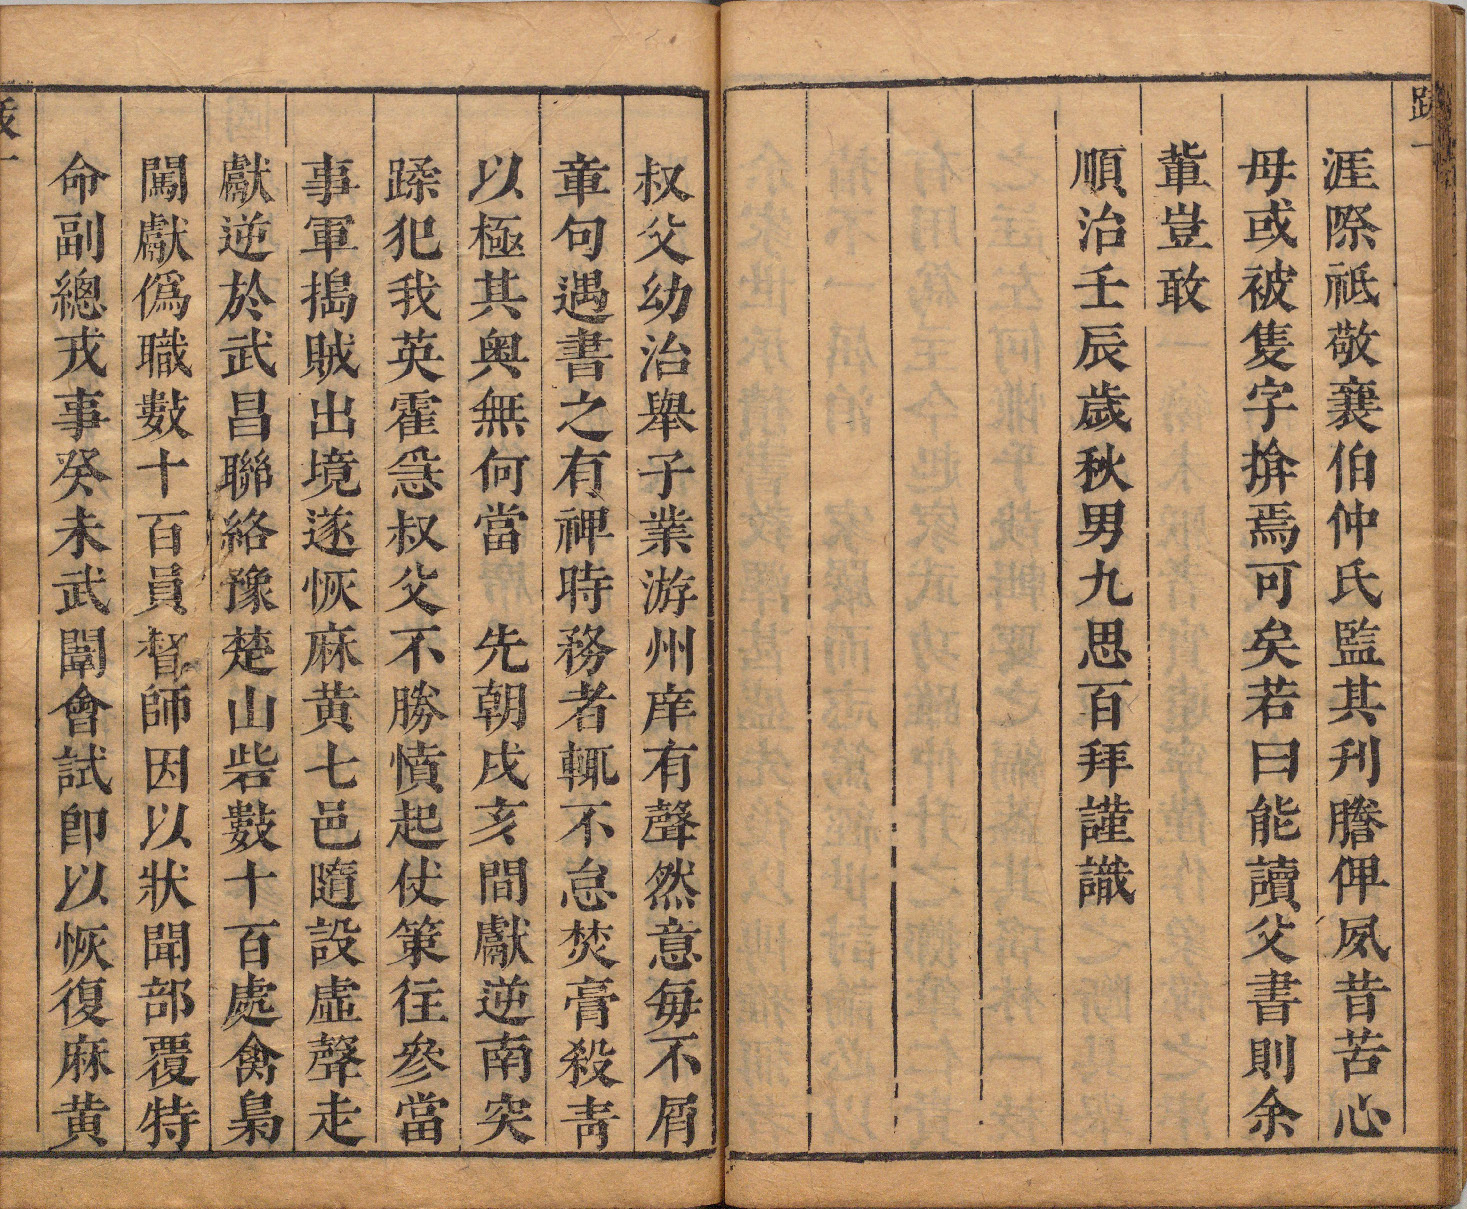 涯際祗敬襄伯仲氏監其刋謄俾夙昔苦心
母或被隻字揜焉可矣若曰能讀父書則余
輩豈敢
順治壬辰歲秋男九思百拜謹識
叔父幼治舉子業游州庠有聲然意每不屑
章句遇書之有裨時務者輒不怠焚膏殺靑
以極其奥無何當　先朝戌亥間獻逆南突
蹂犯我英霍急叔父不勝憤起仗策往參當
事軍搗賊出境遂恢麻黄七邑隨設虛聲走
獻逆於武昌聯絡豫楚山砦數十百處禽梟
闖獻僞職數十百員督師因以狀聞部覆特
命副總戎事癸未武闈會試卽以恢復麻黄